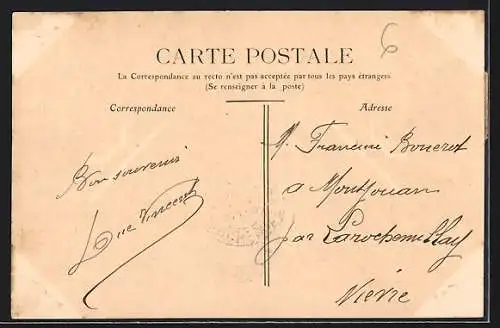 6
CARTE POSTALE
La Correspondance au recto n'est pas acceptée par tous les pays étrangers
(Se renseigner à la poste)
Correspondance
Adresse
Bon souvenir
Vincent
M. Francine Boucrot
a Montjouan
par Larochemillay
Nièvre